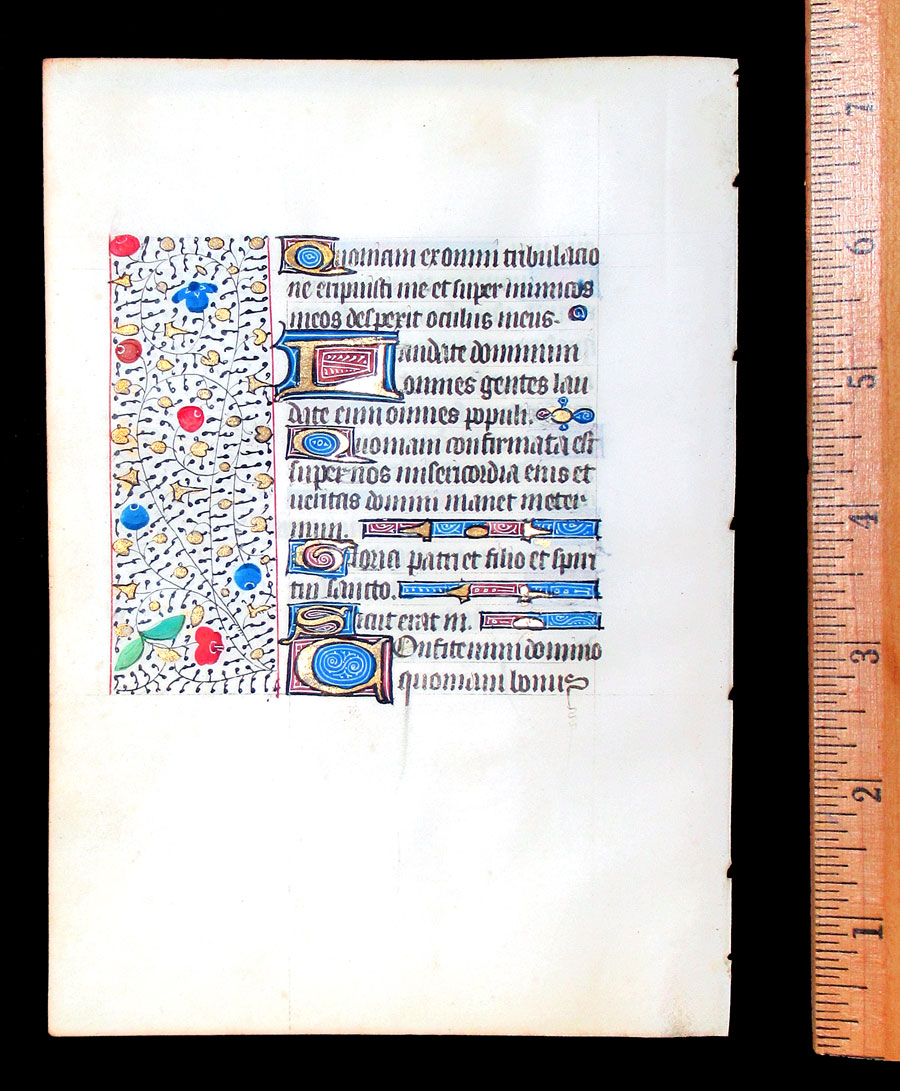 Quoniam ex omni tribulacio
ne eripuisti me et super inimicos
meos despexit oculus meus.
Laudate dominum
omnes gentes lau
date eum omnes populi.
Quoniam confirmata est
super nos misericordia eius et
ueritas domini manet in eter
num.
Gloria patri et filio et spiri
tui sancto.
Sicut erat in.
Confitemini domino
quoniam bonus
7
6
5
4
3
2
1